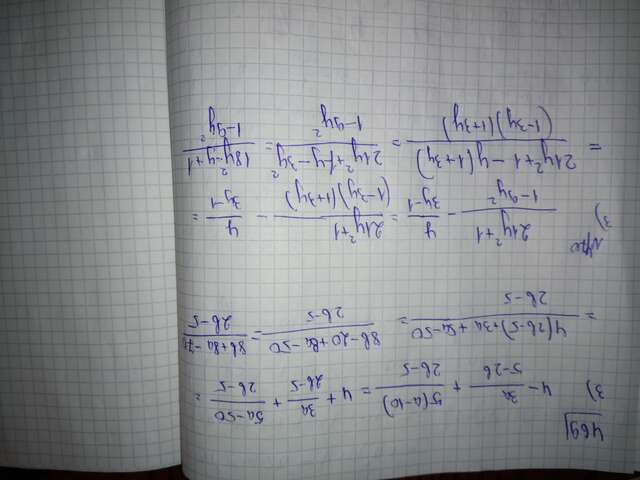 469
3) 4 - 3a/(5-2b) + 5(a-10)/(2b-5) = 4 + 3a/(2b-5) + (5a-50)/(2b-5) =
= (4(2b-5)+3a+5a-50)/(2b-5) = (8b-20+8a-50)/(2b-5) = (8b+8a-7)/(2b-5)
3) (21y²+1)/(1-9y²) - y/(3y-1) = (21y²+1)/((1-3y)(1+3y)) - y/(3y-1) =
= (21y²+1-y(1+3y))/((1-3y)(1+3y)) = (21y²+1-y-3y²)/(1-9y²) = (18y²-y+1)/(1-9y²)